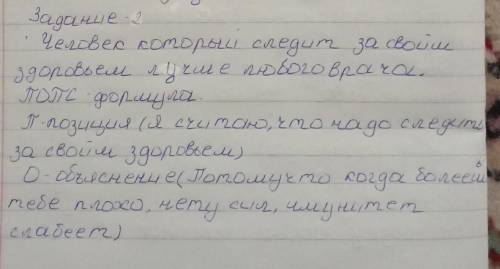 Задание-2
Человек который следит за свойм
здоровьем лучше любого врача.
ПОПС-формула.
П-позиция (я считаю, что надо следить
за свойм здоровьем)
О-объяснение (Потому что когда болееш
тебе плохо, нету сил, имунитет
слабеет)